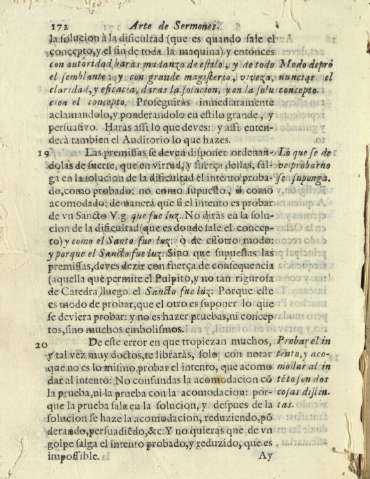 172 Arte de Sermones.
la solucion à la dificultad (que es quando sale el
concepto, y el fin de toda la maquina) y entonces
con autoridad haràs mudanza de estilo, y de todo
el semblante: y con grande magisterio, viveza,
claridad, y eficacia, daràs la solucion, y en la solu-
cion el concepto. Proseguiràs inmediatamente
aclamandolo, y ponderandolo en estilo grande, y
persuasivo. Haràs assi lo que deves: y assi enten-
derà tambien el Auditorio lo que hazes.
Modo de pro
nunciar el
concepto.
19 Las premissas se deven disponer ordenan-
dolas de suerte, que en virtud, y fuerça dellas, sal-
ga en la solucion de la dificultad el intento proba-
do, como probado: no como supuesto, ò como
acomodado: de manera que si el intento es probar
de vn Sancto V.g. que fue luz. No diràs en la solu-
cion de la dificultad (que es donde sale el concep-
to) y como el Santo fue luz: ò de essotro modo:
y porque el Sancto fue luz: Sino que supuestas las
premissas, deves dezir con fuerça de consequencia
(aquella que permite el Pulpito, y no tan rigurosa
de Catedra, luego el Sancto fue luz: Porque este
es modo de probar, que el otro es suponer lo que
se deviera probar: y no es hazer pruebas, ni concep
tos, sino muchos embolismos.
Lo que se de
ve probar no
se suponga.
20 De este error en que tropiezan muchos,
y tal vez muy doctos, te libraràs, solo con notar
que no es lo mismo, probar el intento, que acomo
dar al intento: No confundas la acomodacion cõ
la prueba, ni la prueba con la acomodacion: por-
que la prueba sale en la solucion, y despues de la
solucion se haze la acomodacion, reduziendo, põ
derando, persuadiẽdo, &c. Y no quieras que de vn
golpe salga el intento probado, y reduzido, que es
impossible. Ay
Probar el in
tento, y aco-
modar al in
tẽto son dos
cosas distin-
tas.